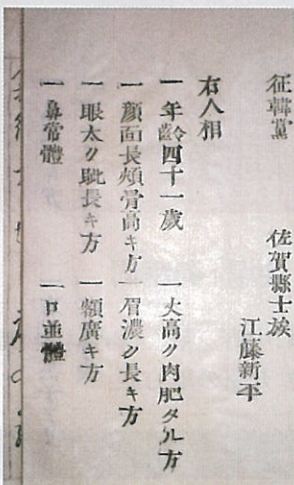 征韓黨
佐賀縣士族
江藤新平
右人相
一年齡四十一歳 一丈高ク肉肥タル方
一顔面長頬骨高キ方 一眉濃ク長キ方
一眼太ク眦長キ方 一額廣キ方
一鼻常體 一口並體